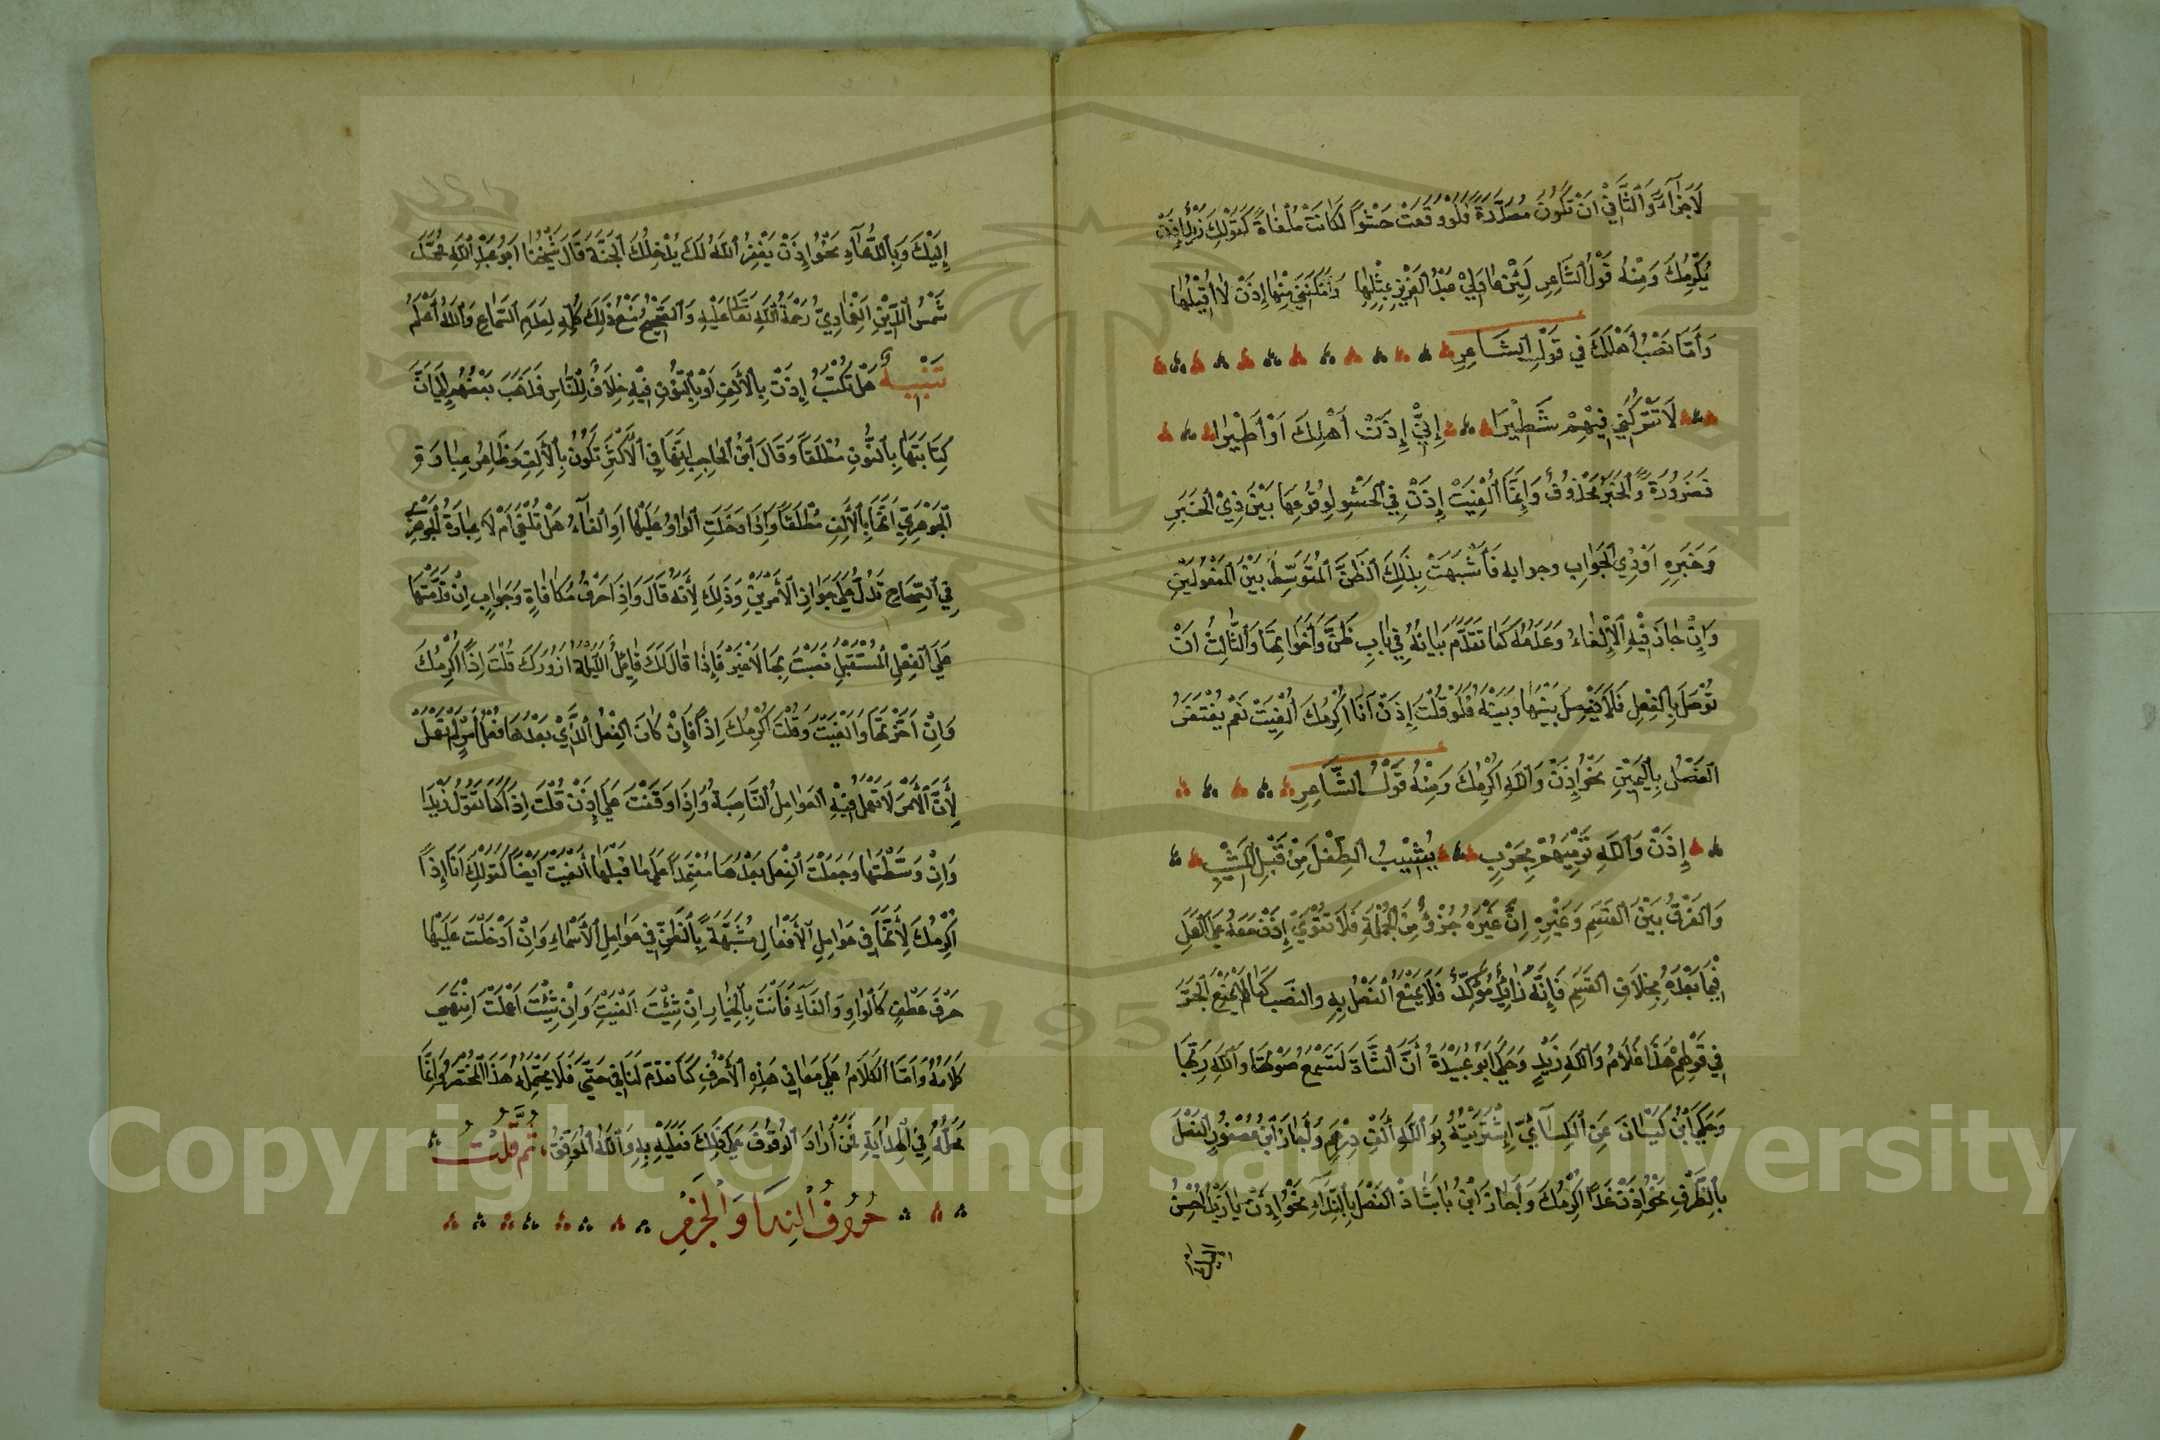 لَاجَزَآءً وَالثَّانِي اَنْ تَكُونَ مُصَدَّرَةً فَلَوْ وَقَعَتْ حَشْوًا لَكَانَتْ مُلْغَاةً كَقَوْلِكَ زَيْدٌ إِذَنْ
يُكْرِمُكَ وَمِنْهُ قَوْلُ الشَّاعِرِ لَئِنْ عَادَ لِيْ عَبْدُ الْعَزِيْزِ بِمِثْلِهَا وَاَمْكَنَنِيْ مِنْهَا إِذَنْ لَا أُقِيْلُهَا
وَأَمَّا نَصْبُ أَهْلِكَ فِي قَوْلِ الشَّاعِرِ
لَا تَتْرُكَنِّي فِيْهِمْ شَطِيْرَا إِنِّيْ إِذَنْ أَهْلِكَ اَوْ أَطِيْرَا
فَضَرُورَةٌ وَالْخَبَرُ مَحْذُوفٌ وَإِنَّمَا أُلْغِيَتْ إِذَنْ فِي الْحَشْوِ لِوُقُوعِهَا بَيْنَ ذِيْ الْخَبَرِ
وَخَبَرِهِ اَوْ ذِي الْجَوَابِ وجوابه فَأَشْبَهَتْ بِذَلِكَ الظَّنَّ الْمُتَوَسِّطَ بَيْنَ الْمَفْعُولَيْنِ
وَإِنْ جَازَ فِيْهِ الْإِلْغَاءُ وَعَدَمُهُ كَمَا تَقَدَّمَ بَيَانُهُ فِي بَابِ ظَنَّ وَأَخَوَاتِهَا وَالثَّالِثُ اَنْ
تُوْصَلَ بِالْفِعْلِ فَلَا يُفْصَلَ بَيْنَهَا وَبَيْنَهُ فَلَوْ قُلْتَ إِذَنْ أَنَا أُكْرِمُكَ أُلْغِيَتْ نَعَمْ يُغْتَفَرُ
الْفَصْلُ بِالْيَمِيْنِ نَحْوُ إِذَنْ وَاللهِ اُكْرِمَكَ وَمِنْهُ قَوْلُ الشَّاعِرِ
إِذَنْ وَاللهِ نَرْمِيَهُمْ بِحَرْبٍ يُشِيْبُ الطِّفْلَ مِنْ قَبْلِ الْمَشِيْبِ
وَالْفَرْقُ بَيْنَ الْقَسَمِ وَغَيْرِهِ اِنَّ غَيْرَهُ جُزْؤٌ مِنَ الْجُمْلَةِ فَلَا تَقْوَىْ إِذَنْ مَعَهُ عَلَى الْعَمَلِ
فِيْمَا بَعْدَهُ بِخِلَافِ الْقَسَمِ فَإِنَّهُ زَائِدٌ مُؤَكِّدٌ فَلَا يَمْنَعُ الْفَصْلُ بِهِ والنصب كَمَا لَمْ يَمْنَعِ الْجَرَّ
فِي قَوْلِهِمْ هَذَا غُلَامُ وَاللهِ زَيْدٍ وَحَكَى اَبُوْ عُبَيْدَةَ أَنَّ الشَّاةَ لَتَسْمَعُ صَوْتَ وَاللهِ رَبِّهَا
وَحَكَى ابْنُ كَيْسَانَ عَنِ الْكِسَآئِيِّ اِشْتَرَيْتُهُ بِوَ اللهِ اَلْفِ دِرْهَمٍ وَاَجَازَ ابْنُ عُصْفُورٍ الْفَصْلَ
بِالظَّرْفِ نَحْوُ اِذَنْ غَدًا اُكْرِمَكَ وَأَجَازَ ابْنُ بَابَشَاذَ الْفَصْلَ بِالنِّدَآءِ نَحْوُ اِذَنْ يَا زَيْدُ اُحْسِنُ
إِلَيْكَ وَبِالدُّعَآءِ نَحْوُ إِذَنْ يَغْفِرُ اللهُ لَكَ يُدْخِلَكَ الْجَنَّةَ قَالَ شَيْخُنَا اَبُوْ عَبْدِ اللهِ مُحَمَّد
شَمْسُ الدِّيْنِ الْغُمَارِيُّ رَحْمَةُ اللهِ تَعَالَى عَلَيْهِ وَالصَّحِيْحُ مَنْعُ ذَلِكَ كُلِّهِ لِعَدَمِ السَّمَاعِ وَاللهُ أَعْلَمُ
تَنْبِيهٌ هَلْ تُكْتَبُ إِذَنْ بِالْأَلِفِ اَوْ بِالنُّونِ فِيْهِ خِلَافٌ لِلنَّاسِ فَذَهَبَ بَعْضُهُمْ إِلَى اَنَّ
كِتَابَتَهَا بِالنُّونِ مُطْلَقًا وَقَالَ ابْنُ الْحَاجِبِ إِنَّهَا فِي الْأَكْثَرِ تَكُوْنُ بِالْأَلِفِ وَظَاهِرُ عِبَارَةِ
الْجَوْهَرِيِّ اَنَّهَا بِالْأَلِفِ مُطْلَقًا وَإِذَا دَخَلَتِ الْوَاوُ عَلَيْهَا اَوِ الْفَآءُ هَلْ تُلْغَى اَمْ لَا عِبَارَةُ الْجَوْهَرِيِّ
فِي الصِّحَاحِ تَدُلُّ عَلَى جَوَازِ الْأَمْرَيْنِ وَذَلِكَ لِأَنَّهُ قَالَ وَإِذَا حَرْفُ مُكَافَاةٍ وَجَوَابٍ اِنْ قَدَّمْتَهَا
عَلَى الْفِعْلِ الْمُسْتَقْبَلِ نَصَبْتَ بِهَا لَا غَيْرَ فَإِذَا قَالَ لَكَ قَائِلٌ اللَّيْلَةَ اَزُورُكَ قُلْتَ اِذًا اُكْرِمَكَ
وَاِنْ اَخَّرْتَهَا وَاَلْغَيْتَ وَقُلْتَ اُكْرِمُكَ اِذًا فَإِنْ كَانَ الْفِعْلُ الَّذِيْ بَعْدَهَا فِعْلُ اَمْرٍ لَمْ تَعْمَلْ
لِأَنَّ الْأَمْرَ لَا تَعْمَلُ فِيْهِ الْعَوَامِلُ النَّاصِبَةُ وَإِذَا وَقَفْتَ عَلَى إِذَنْ قُلْتَ اِذَا كَمَا تَقُوْلُ زَيْدَا
وَإِنْ وَسَّطْتَهَا وَجَعَلْتَ الْفِعْلَ بَعْدَهَا مُعْتَمِدًا عَلَى مَا قَبْلَهَا أَلْغَيْتَ اَيْضًا كَقَوْلِكَ اَنَا إِذًا
اُكْرِمُكَ لِأَنَّهَا فِي عَوَامِلِ الْأَفْعَالِ مُشَبَّهَةٌ بِالظَّنِّ فِي عَوَامِلِ الْأَسْمَاءِ وَإِنْ اَدْخَلْتَ عَلَيْهَا
حَرْفَ عَطْفٍ كَالْوَاوِ وَالْفَآءِ فَاَنْتَ بِالْخِيَارِ اِنْ شِئْتَ اَلْغَيْتَ وَاِنْ شِئْتَ اَعْمَلْتَ اِنْتَهَى
كَلَامُهُ وَاَمَّا الْكَلَامُ عَلَى مَعَانِي هَذِهِ الْأَحْرُفِ كَمَا تقدّم لَنَا فِي حَتَّى فَلَا يَحْتَمِلُهُ هَذَا الْمُخْتَصَرُ وَإِنَّمَا
مَحَلُّهُ فِي الْهِدَايَةِ فَمَنْ أَرَادَ الْوُقُوفَ عَلَى ذَلِكَ فَعَلَيْهِ بِهِ وَاللهُ الْمُوَفِّقُ ثُمَّ قُلْتُ
حُرُوفُ النِّدَا وَالْجَزْمِ
Copyright © King Saud University
1957